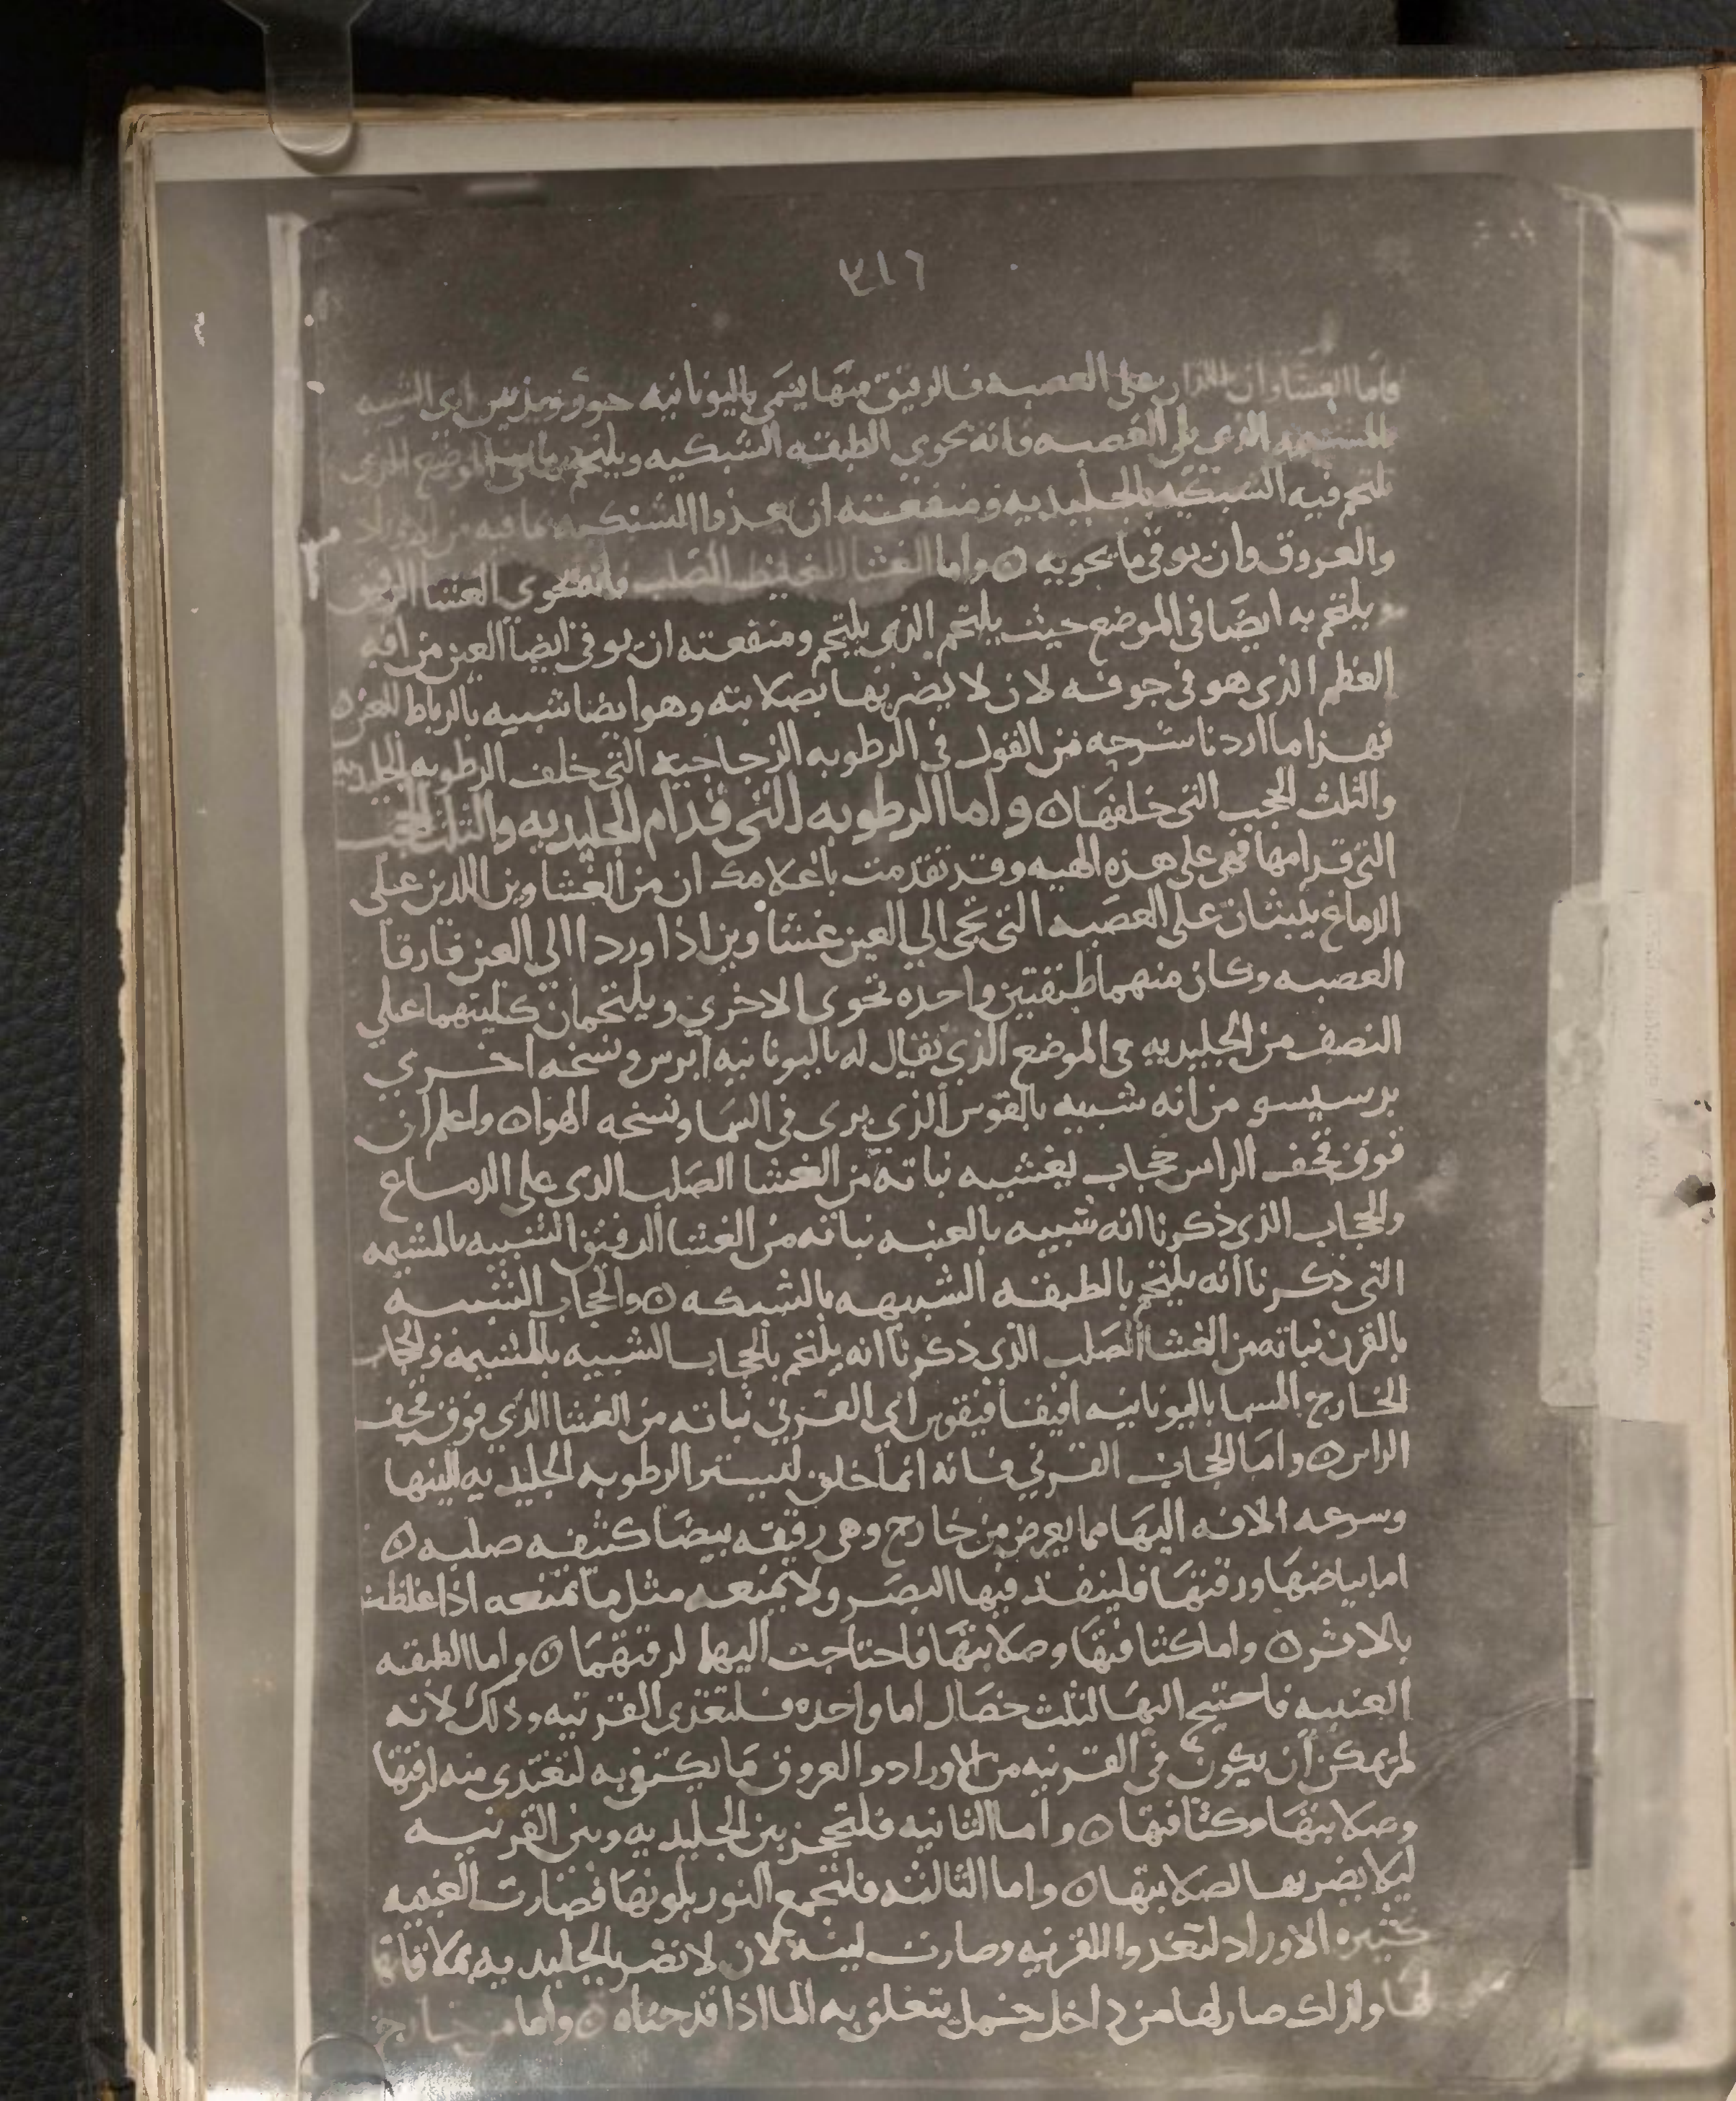 ٣١٦
فاما الغشاوان اللذان على العصبه فالرقيق منها يسمى باليونانيه اى الشبيه
بالمشيمه الذى على العصبه فانه يحوي الطبقه الشبكيه ويلتحم الموضع الذى
تلتحم فيه الشبكيه بالجليديه ومنفعته ان يغذوا الشبكيه بما فيه من الاوراد
والعروق وان يوقى ما يحويه ۞ واما الغشا الغليظ الصلب فانه يحوى الغشا الرقيق
يلتحم به ايضا فى الموضع حيث يلتحم الذى يلتحم ومنفعته ان يوقى ايضا العين من افه
العظم الذى هو فى جوفه لان لا يضر بها بصلابته وهو ايضا شبيه بالرباط للعين ۞
فهذا ما اردنا شرحه من القول فى الرطوبه الزجاجيه التى خلف الرطوبه الجليديه
والثلث الحجب التى خلفها ۞ واما الرطوبه التى قدام الجليديه والثلث الحجب
التى قدامها فهى على هذه الهيه وقد تقدمت باعلامك ان من الغشاوين اللذين على
الدماغ يلبثان على العصبه التى تجى الى العين غشاوين اذا وردا الى العين فارقا
العصبه وكان منهما طبقتين واحده تحوى الاخرى ويلتحمان كليتهما على
النصف من الجليديه فى الموضع الذى يقال له باليونانيه ايرس ونسخه اخرى
برسيسو من انه شبيه بالقوس الذي يرى فى السما ونسخه الهوا ۞ واعلم ان
فوق قحف الراس حجاب يغشيه نباته من الغشا الصلب الذى على الدماغ
والحجاب الذى ذكرنا انه شبيه بالعنبه نباته من الغشا الرقيق الشبيه بالمشيمه
التى ذكرنا انه يلتحم بالطبقه الشبيهه بالشبكه ۞ والحجاب الشبيه
بالقرن نباته من الغشا الصلب الذى ذكرنا انه يلتحم بالحجاب الشبيه بالمشيمه والحجاب
الخارج المسما باليونانيه افيفافيقوس اى القرني نباته من الغشا الذي فوق قحف
الراس ۞ واما الحجاب القرني فانه انما خلق ليستر الرطوبه الجليديه للينها
وسرعه الافه اليها مما يعرض من خارج وهى رقيقه بيضا كثيفه صلبه ۞
اما بياضها ورقتها فلينفذ فيها البصر ولا يمنعه مثل ما تمنعه اذا غلظت
بالاثر ۞ واما كثافتها وصلابتها فاحتاجت اليها لرقتهما ۞ واما الطبقه
العنبيه فاحتيج اليها لثلث خصال اما واحده فلتغذى القرنيه وذلك لانه
لم يمكن ان يكون فى القرنيه من الاوراد والعروق ما يكتفى به لتغتدى منه لرقتها
وصلابتها وكثافتها ۞ واما الثانيه فلتحجز بين الجليديه وبين القرنيه
ليلا يضر بها لصلابتها ۞ واما الثالثه فلتجمع النور بلونها فصارت العنبيه
كثيره الاوراد لتغذوا القرنيه وصارت لينه لان لا تضر بالجليديه بملاقاتها
لها ولذلك صار لها من داخل خمل يتعلق به الما اذا قدحناه ۞ واما من خارج